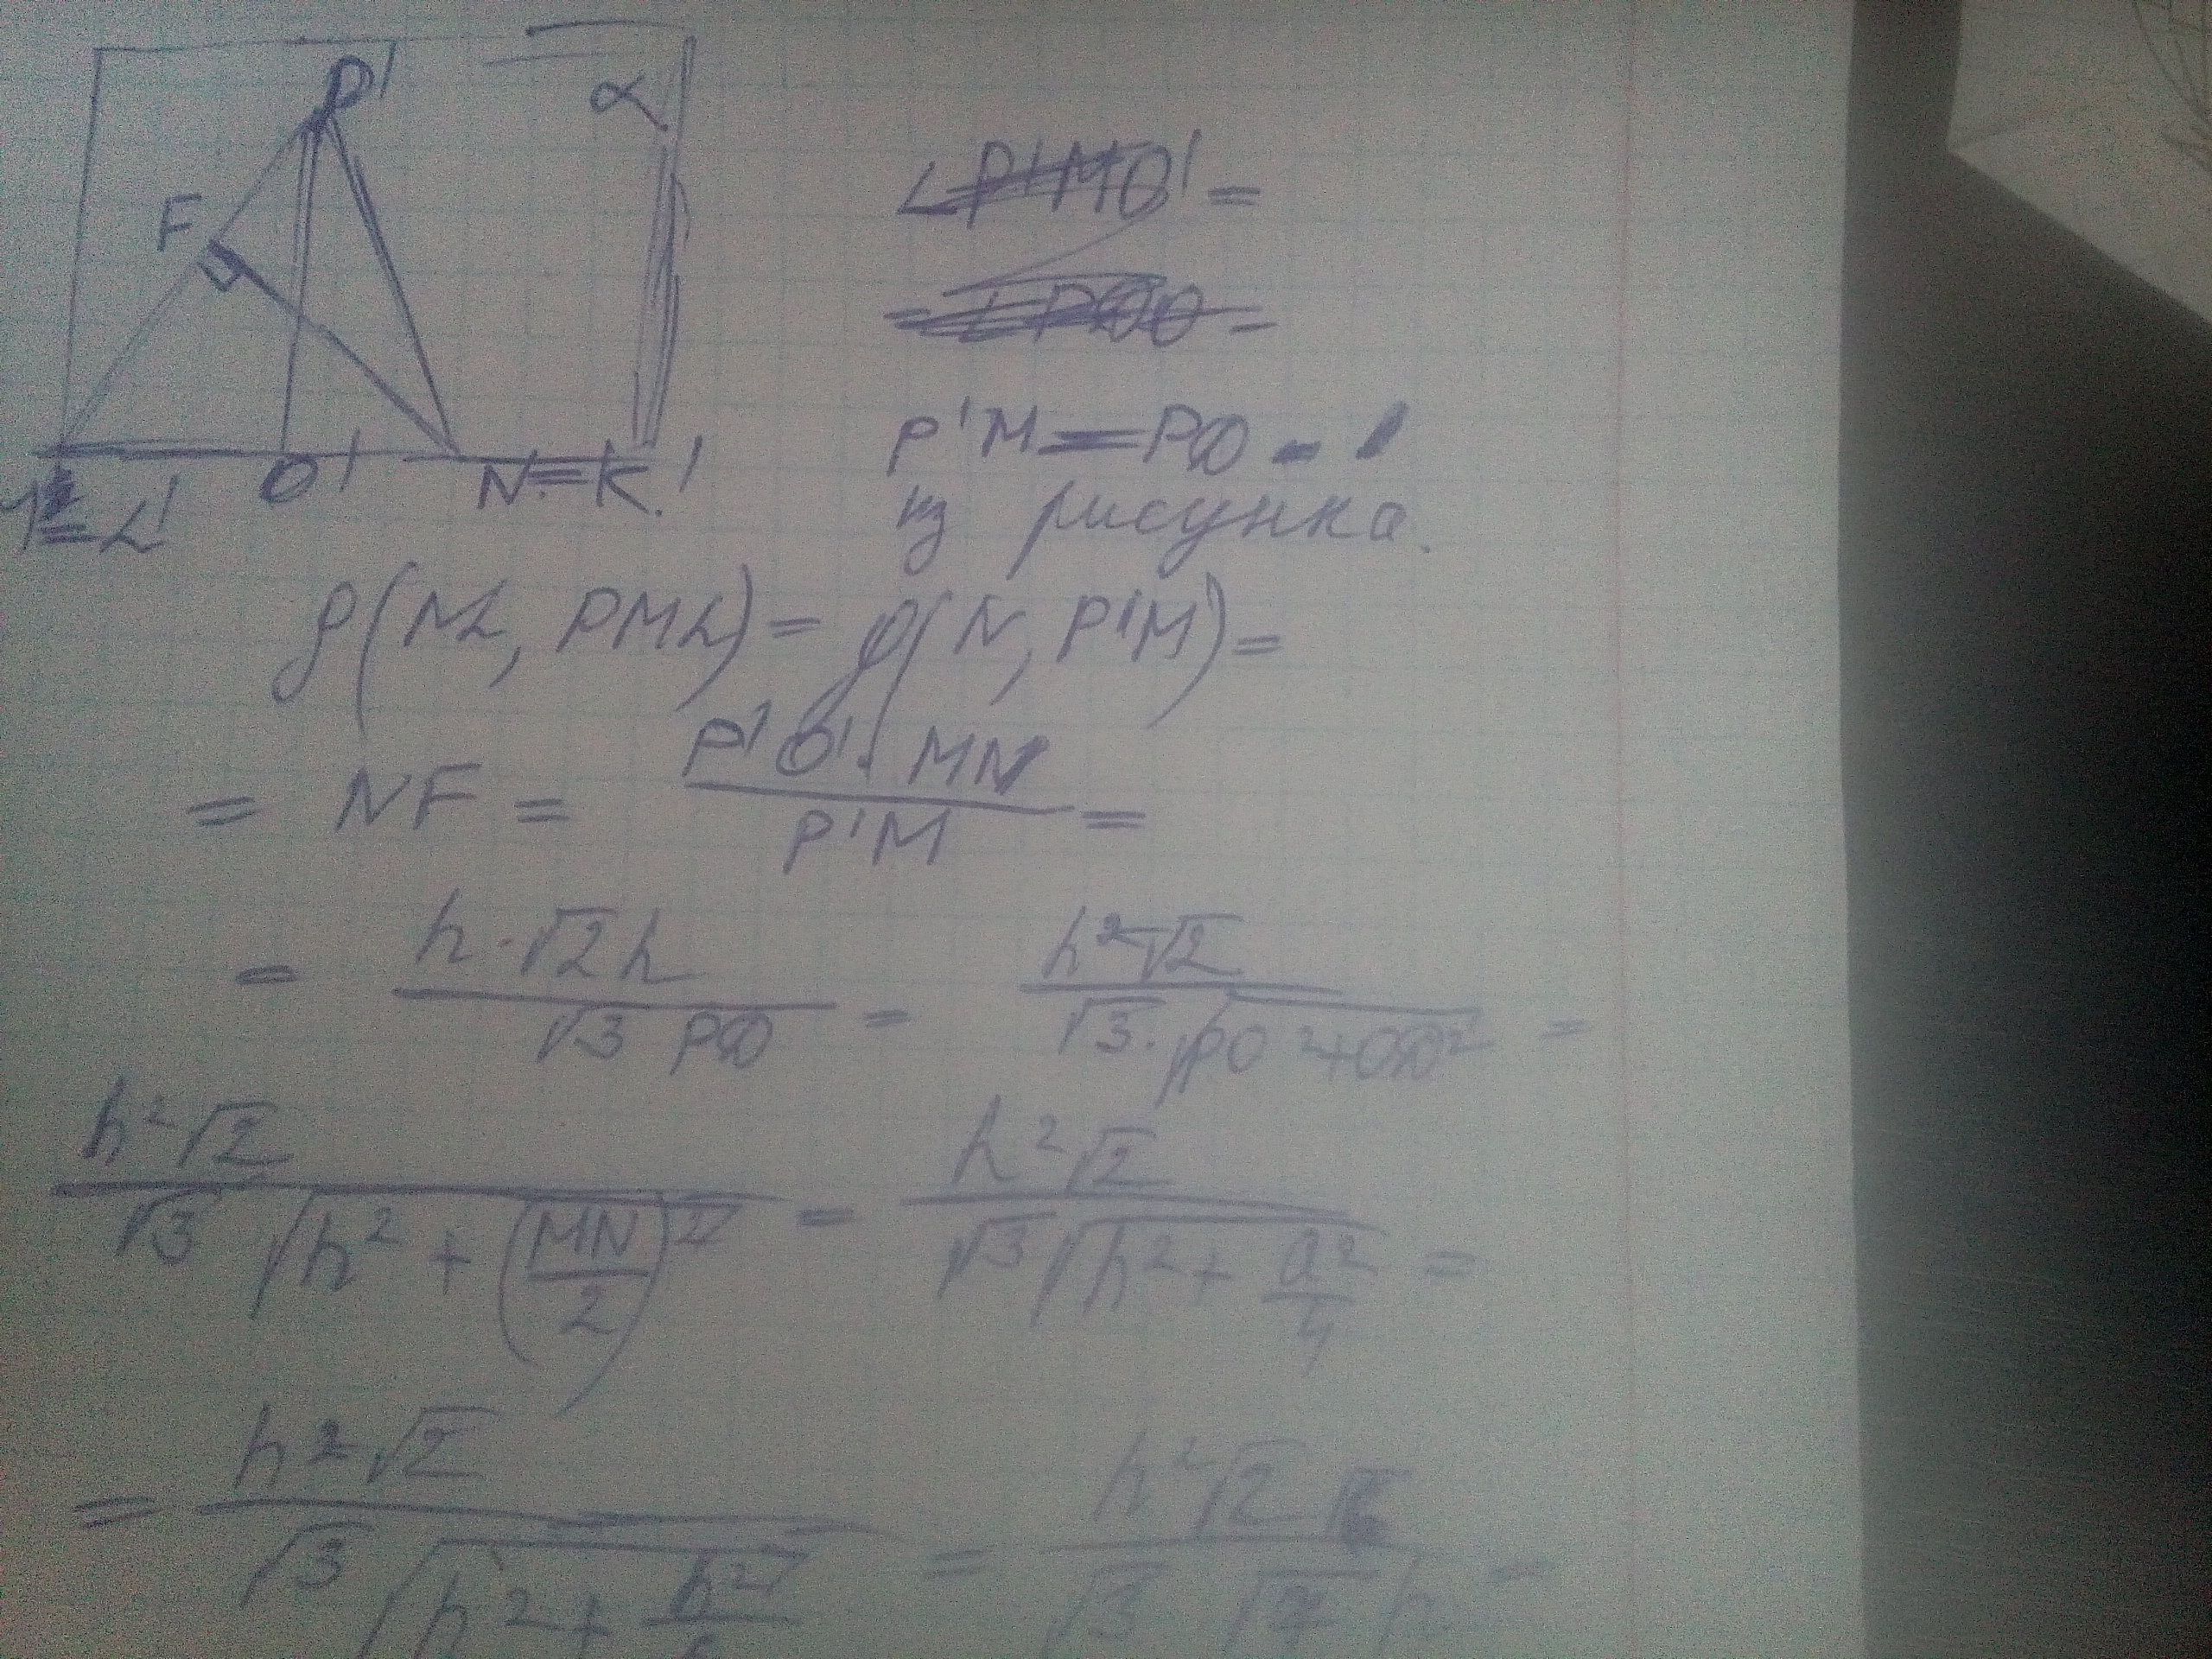 P'
α
F
L' O' N = K'
∠P'MO' =
P'M = PQ
из рисунка.
ρ(NL, PML) = ρ(N, P'M) =
= NF = P'O' · MN / P'M =
= h · √2 h / √3 PQ = h² √2 / √3 · √PO² + OQ² =
h² √2 / √3 √h² + (MN / 2)² = h² √2 / √3 √h² + a² / 4 =
= h² √2 / √3 √h² + h² / 6 = h² √2 √6 / √3 √7 h =